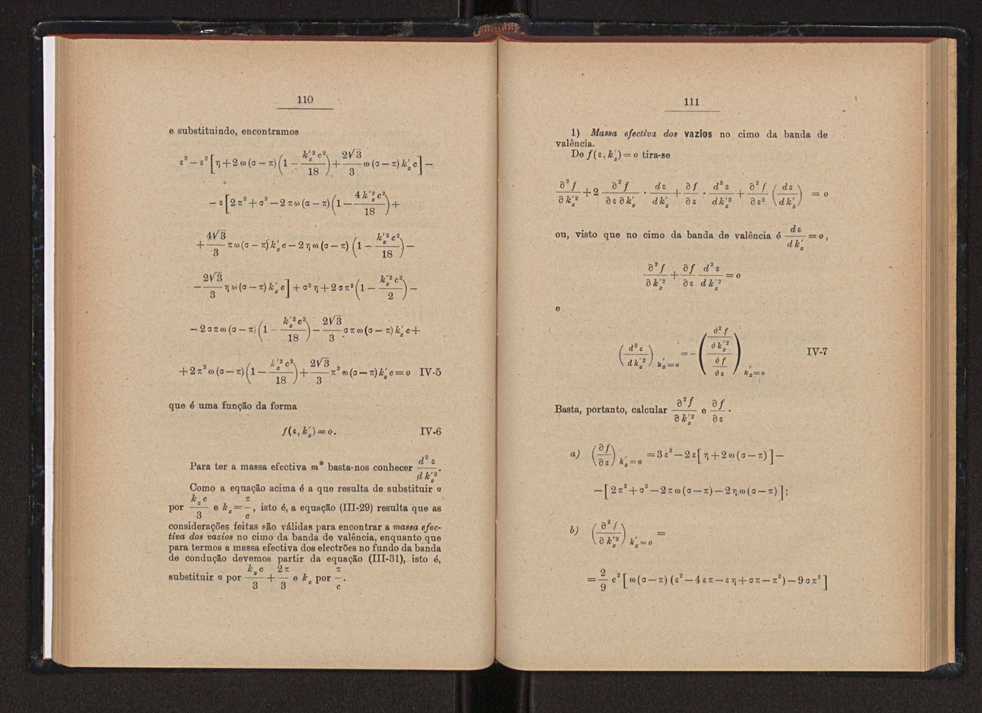 110
e substituindo, encontramos
ε³ − ε² [ η + 2 ω (σ − π) ( 1 − k'ₓ² c² / 18 ) + 2√3 / 3 ω (σ − π) k'ₓ c ] −
− ε [ 2 π² + σ² − 2 π ω (σ − π) ( 1 − 4 k'ₓ² c² / 18 ) +
+ 4√3 / 3 π ω (σ − π) k'ₓ c − 2 η ω (σ − π) ( 1 − k'ₓ² c² / 18 ) −
− 2√3 / 3 η ω (σ − π) k'ₓ c ] + σ² η + 2 σ π² ( 1 − k'ₓ² c² / 2 ) −
− 2 σ π ω (σ − π) ( 1 − k'ₓ² c² / 18 ) − 2√3 / 3 σ π ω (σ − π) k'ₓ c +
+ 2 π² ω (σ − π) ( 1 − k'ₓ² c² / 18 ) + 2√3 / 3 π² ω (σ − π) k'ₓ c = o IV-5
que é uma função da forma
f(ε, k'ₓ) = o. IV-6
Para ter a massa efectiva m* basta-nos conhecer d² ε / d k'ₓ².
Como a equação acima é a que resulta de substituir α
por kₓ c / 3 e k_z = π / c, isto é, a equação (III-29) resulta que as
considerações feitas são válidas para encontrar a massa efec-
tiva dos vazios no cimo da banda de valência, enquanto que
para termos a massa efectiva dos electrões no fundo da banda
de condução devemos partir da equação (III-31), isto é,
substituir α por kₓ c / 3 + 2 π / 3 e k_z por π / c.
111
1) Massa efectiva dos vazios no cimo da banda de
valência.
De f (ε, k'ₓ) = o tira-se
∂² f / ∂ k'ₓ² + 2 ∂² f / ∂ ε ∂ k'ₓ · d ε / d k'ₓ + ∂ f / ∂ ε · d² ε / d k'ₓ² + ∂² f / ∂ ε² ( d ε / d k'ₓ ) = o
ou, visto que no cimo da banda de valência é d ε / d k'ₓ = o,
∂² f / ∂ k'ₓ² + ∂ f / ∂ ε d² ε / d k'ₓ² = o
e
( d² ε / d k'ₓ² ) k'ₓ = o = − ( ∂² f / ∂ k'ₓ² / ∂ f / ∂ ε ) k'ₓ = o IV-7
Basta, portanto, calcular ∂² f / ∂ k'ₓ² e ∂ f / ∂ ε .
a) ( ∂ f / ∂ ε ) k'ₓ = o = 3 ε² − 2 ε [ η + 2 ω (σ − π) ] −
− [ 2 π² + σ² − 2 π ω (σ − π) − 2 η ω (σ − π) ] ;
b) ( ∂² f / ∂ k'ₓ² ) k'ₓ = o =
= 2 / 9 c² [ ω (σ − π) (ε² − 4 ε π − ε η + σ π − π²) − 9 σ π² ]